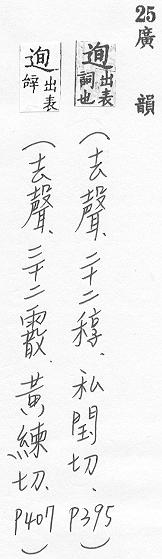 25 廣韻
迿出表詞也（去聲、二十二稕、私閏切、P395）
迿出表辝（去聲、三十二霰、黃練切、P407）